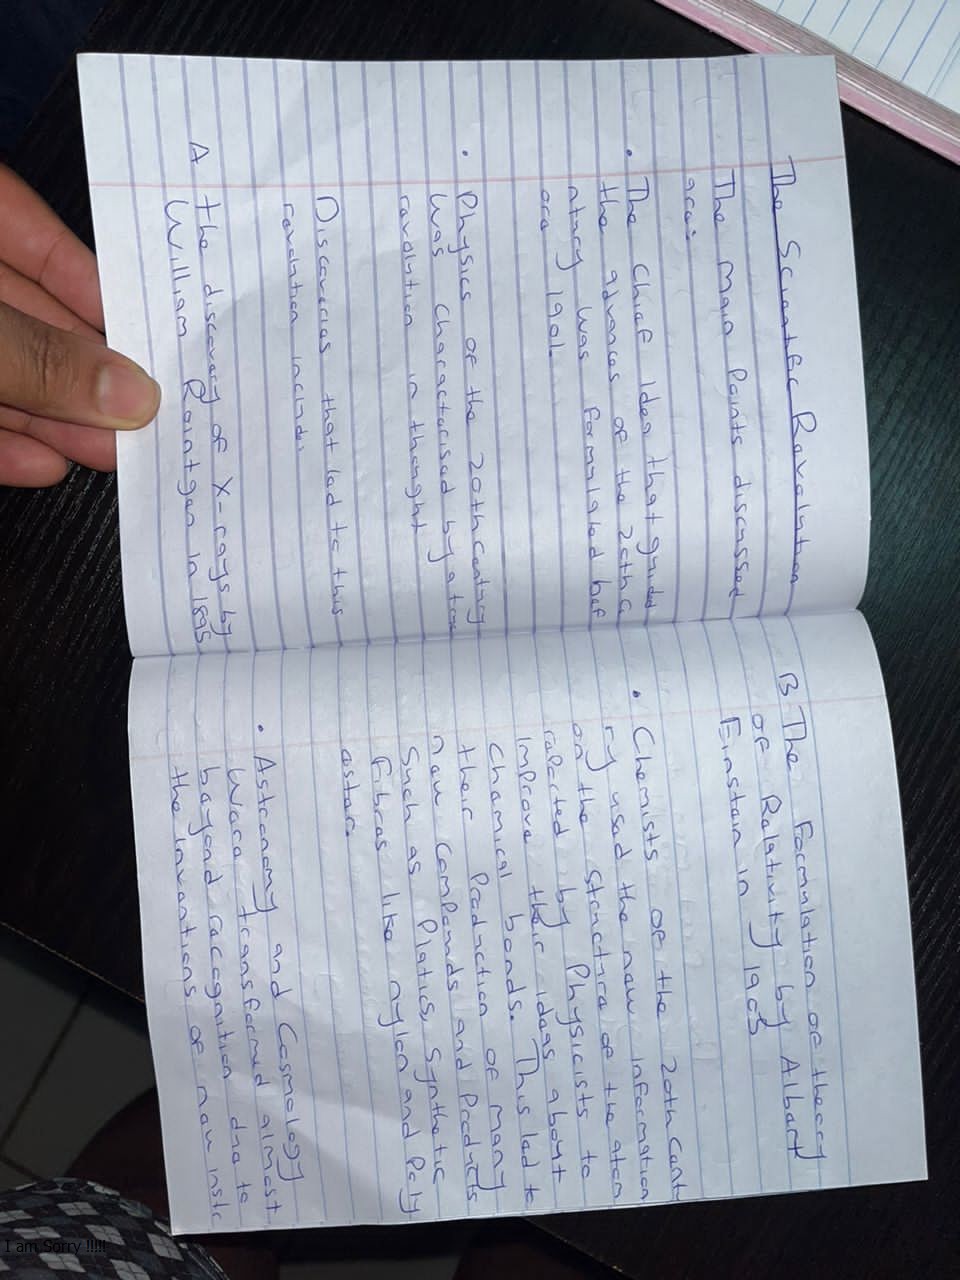 The Scientific Revolution
The Main Points discussed
are:
• The chief idea that guided
the advances of the 20th ce
ntury was formulated bef
ore 1901.
• Physics of the 20th century
was characterised by a true
revolution in thought
Discoveries that led to this
revolution include:
A the discovery of X-rays by
William Rointgen in 1895
B The Formulation of theory
of Relativity by Albert
Einstein in 1905
• Chemists of the 20th Cent
ry used the new information
on the structure of the atom
relected by Physicists to
improve their ideas about
Chemical bonds. This led to
their Production of many
new Compounds and Products
Such as Platics, Synthetic
Fibres like nylon and Poly
esters
• Astronomy and Cosmology
Were transformed almost
beyond recognition due to
the Inventions of new instr
I am Sorry !!!!!